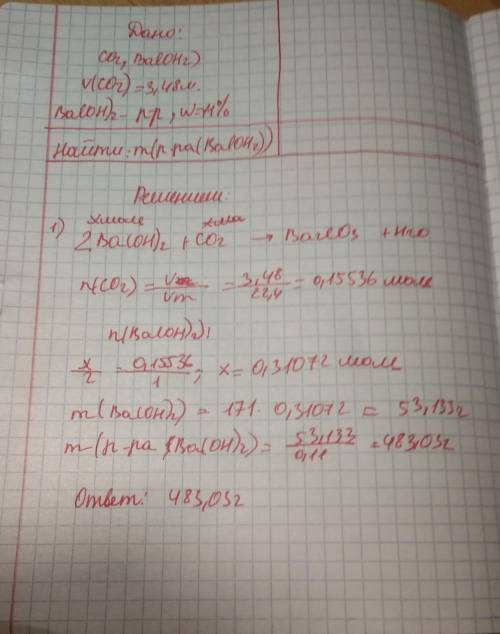 Дано:
CO2, Ba(OH2)
V(CO2) = 3,48л.
Ba(OH)2 – р-р, w=11%
Найти: m(р-ра(Ba(OH)2))
Решение:
x моль x моль
1) 2Ba(OH)2 + CO2 → Ba2CO3 + H2O
n(CO2) = V/Vm = 3,48/22,4 = 0,15536 моль
n(Ba(OH)2);
x/2 = 0,15536/1; x = 0,31072 моль
m(Ba(OH)2) = 171 · 0,31072 = 53,133г
m(р-ра Ba(OH)2) = 53,133/0,11 = 483,03г
Ответ: 483,03г